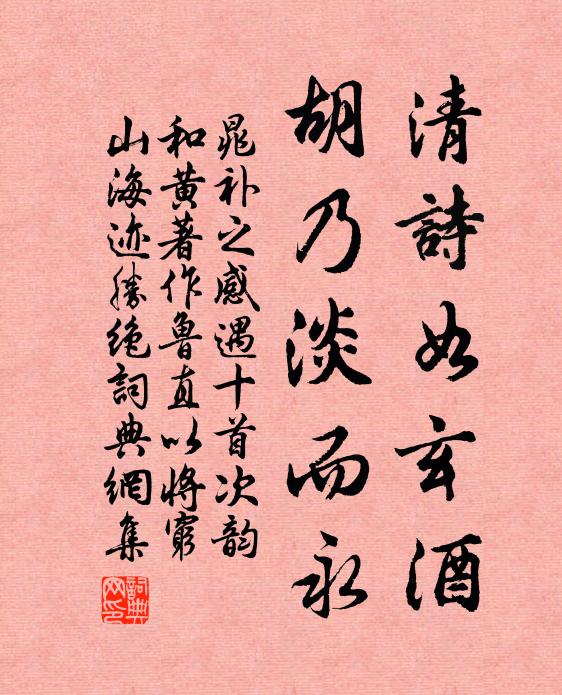 清詩如玄酒
胡乃淡而永
晁补之感遇十首次韵
和黄著作鲁直以将窮
山海迹勝绝詞典網集
詞典
网印